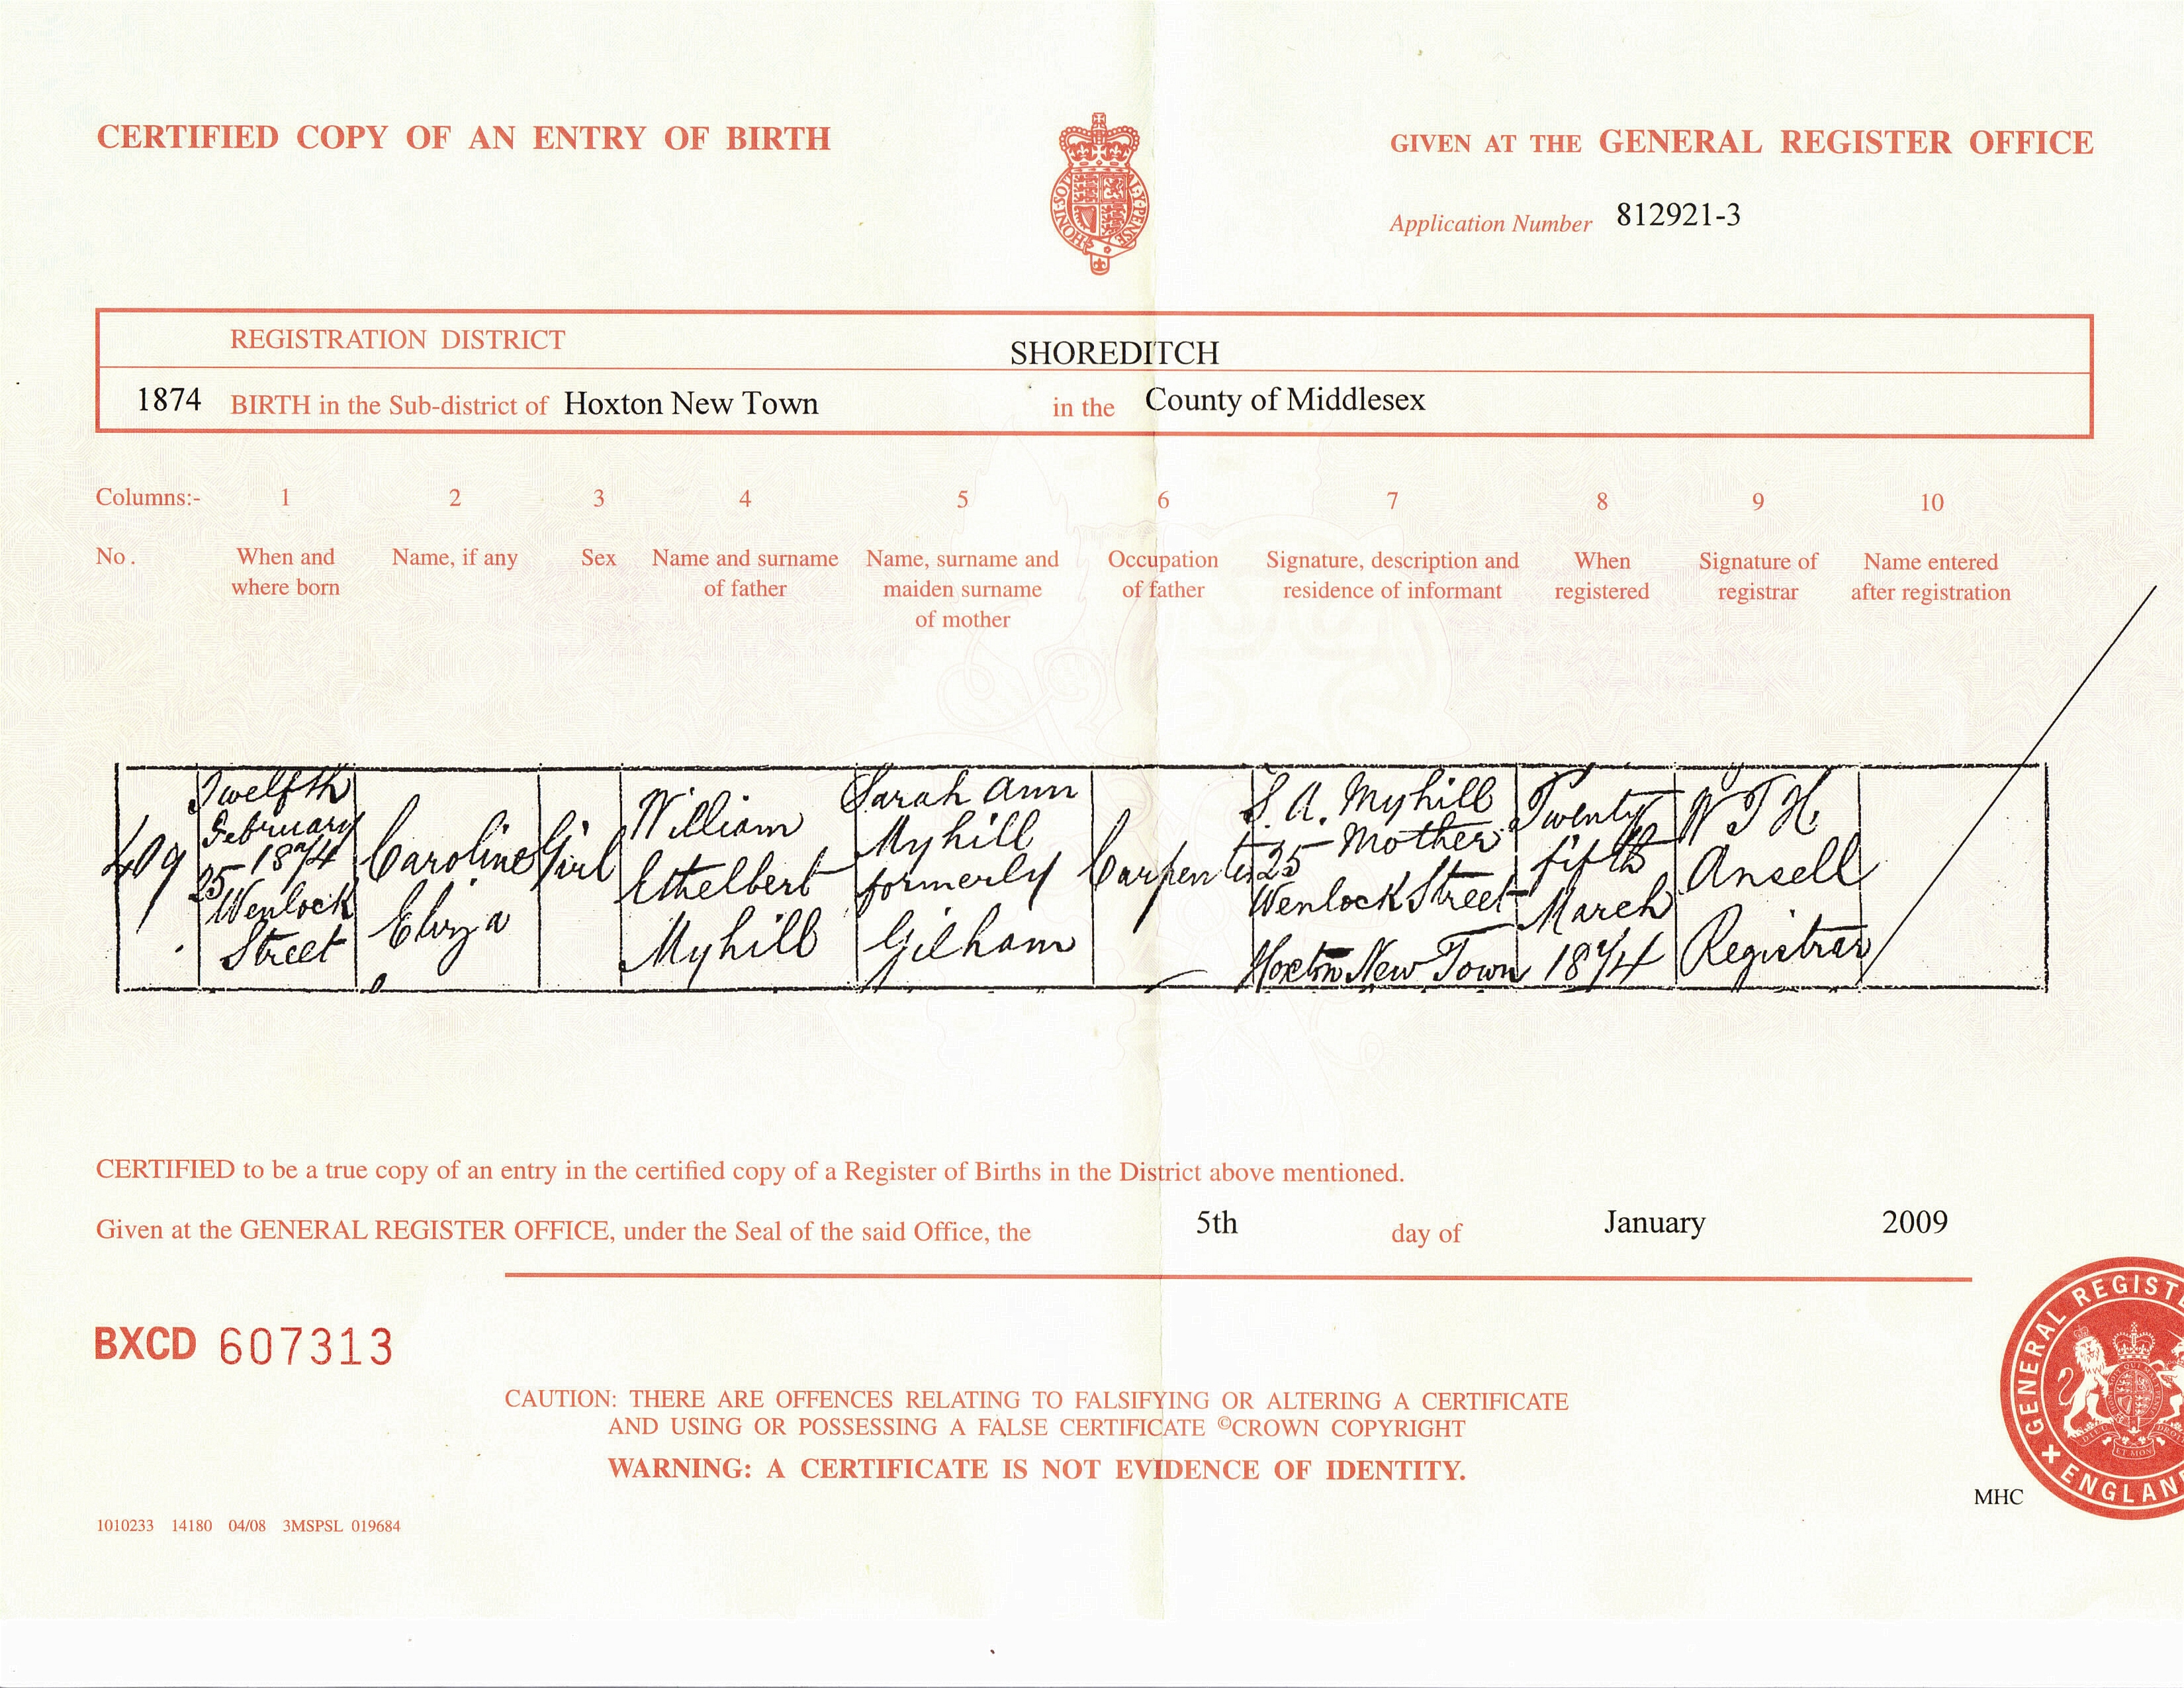 CERTIFIED COPY OF AN ENTRY OF BIRTH
GIVEN AT THE GENERAL REGISTER OFFICE
HONI·SOIT AL·Y·PENSE
Application Number 812921-3
REGISTRATION DISTRICT SHOREDITCH
1874 BIRTH in the Sub-district of Hoxton New Town in the County of Middlesex
Columns:- 1 2 3 4 5 6 7 8 9 10
No. When and where born
Name, if any
Sex
Name and surname of father
Name, surname and maiden surname of mother
Occupation of father
Signature, description and residence of informant
When registered
Signature of registrar
Name entered after registration
409
Twelfth
February
1874
25
Wenlock
Street
Caroline
Eliza
Girl
William
Ethelbert
Myhill
Sarah Ann
Myhill
formerly
Gilham
Carpenter
S. A. Myhill
Mother
25
Wenlock Street
Hoxton New Town
Twenty
fifth
March
1874
W T H.
Ansell
Registrar
CERTIFIED to be a true copy of an entry in the certified copy of a Register of Births in the District above mentioned.
Given at the GENERAL REGISTER OFFICE, under the Seal of the said Office, the 5th day of January 2009
BXCD 607313
CAUTION: THERE ARE OFFENCES RELATING TO FALSIFYING OR ALTERING A CERTIFICATE
AND USING OR POSSESSING A FALSE CERTIFICATE ©CROWN COPYRIGHT
WARNING: A CERTIFICATE IS NOT EVIDENCE OF IDENTITY.
GENERAL REGISTE
ENGLAN
MHC
1010233 14180 04/08 3MSPSL 019684